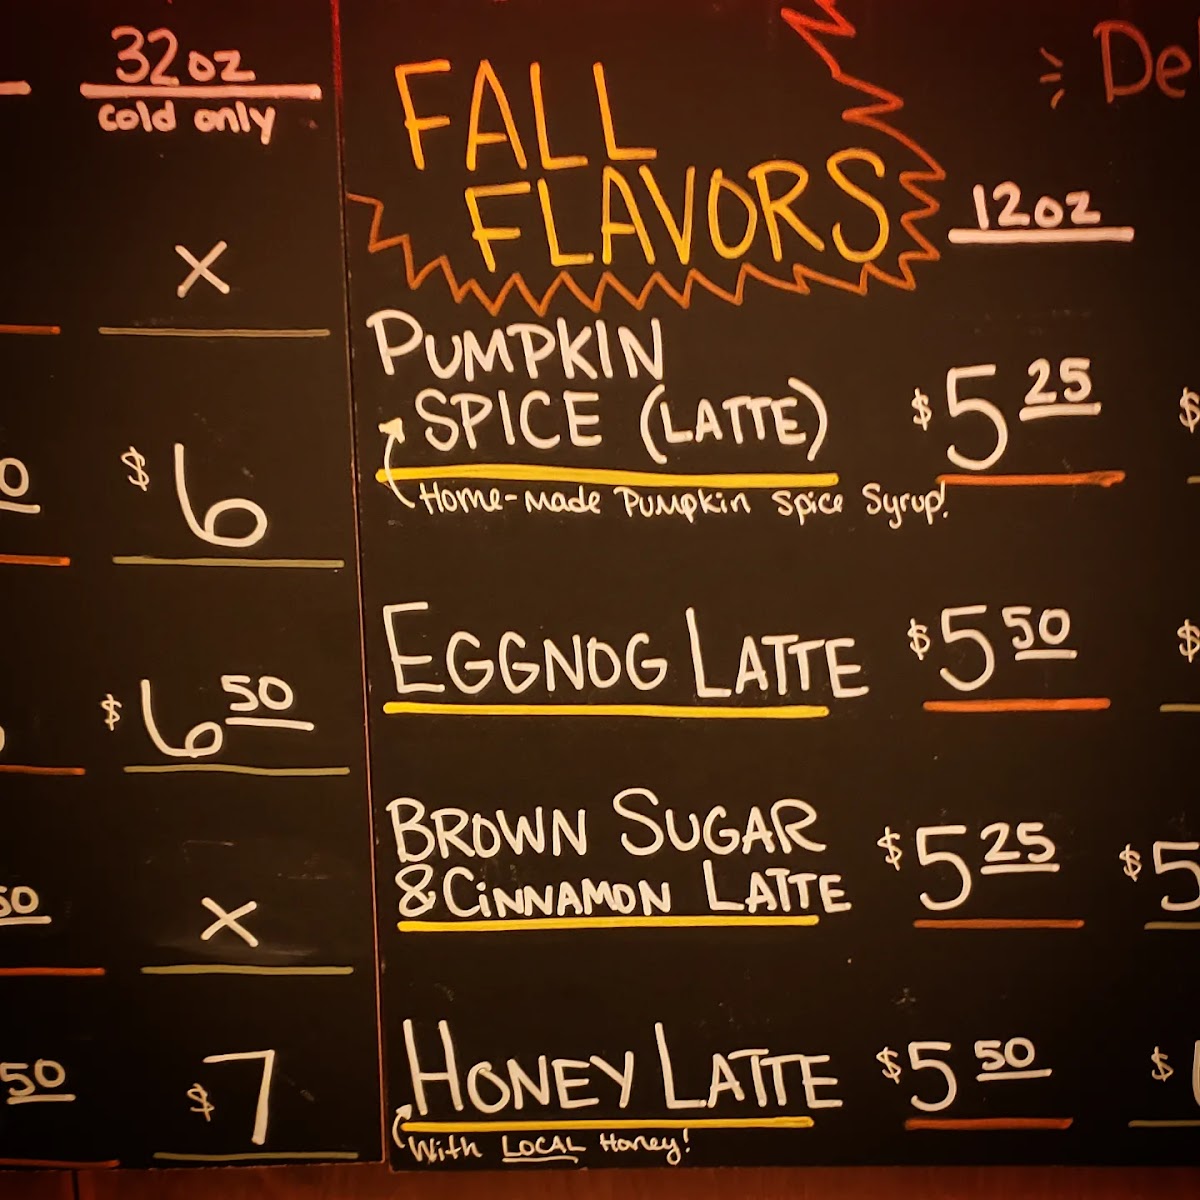 32oz
cold only
X
$6
$6 50
X
$7
50
50
FALL
FLAVORS
12oz
PUMPKIN
SPICE (LATTE) $5 25 $
Home-made Pumpkin Spice Syrup!
EGGNOG LATTE $5 50 $
BROWN SUGAR
&CiNNAMON LATTE $5 25 $5
HONEY LATTE $5 50 $
With LOCAL Honey!
De